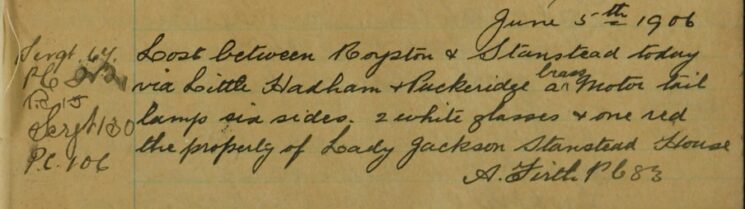 June 5th 1906
Sergt. 64.
Lost between Royston & Stanstead today
P.C.
via Little Hadham & Puckeridge a brass Motor tail
P.C. 15
lamp six sides. 2 white glasses & one red
Sergt 130
the property of Lady Jackson Stanstead House
P.C. 106
A. Firth PC 83